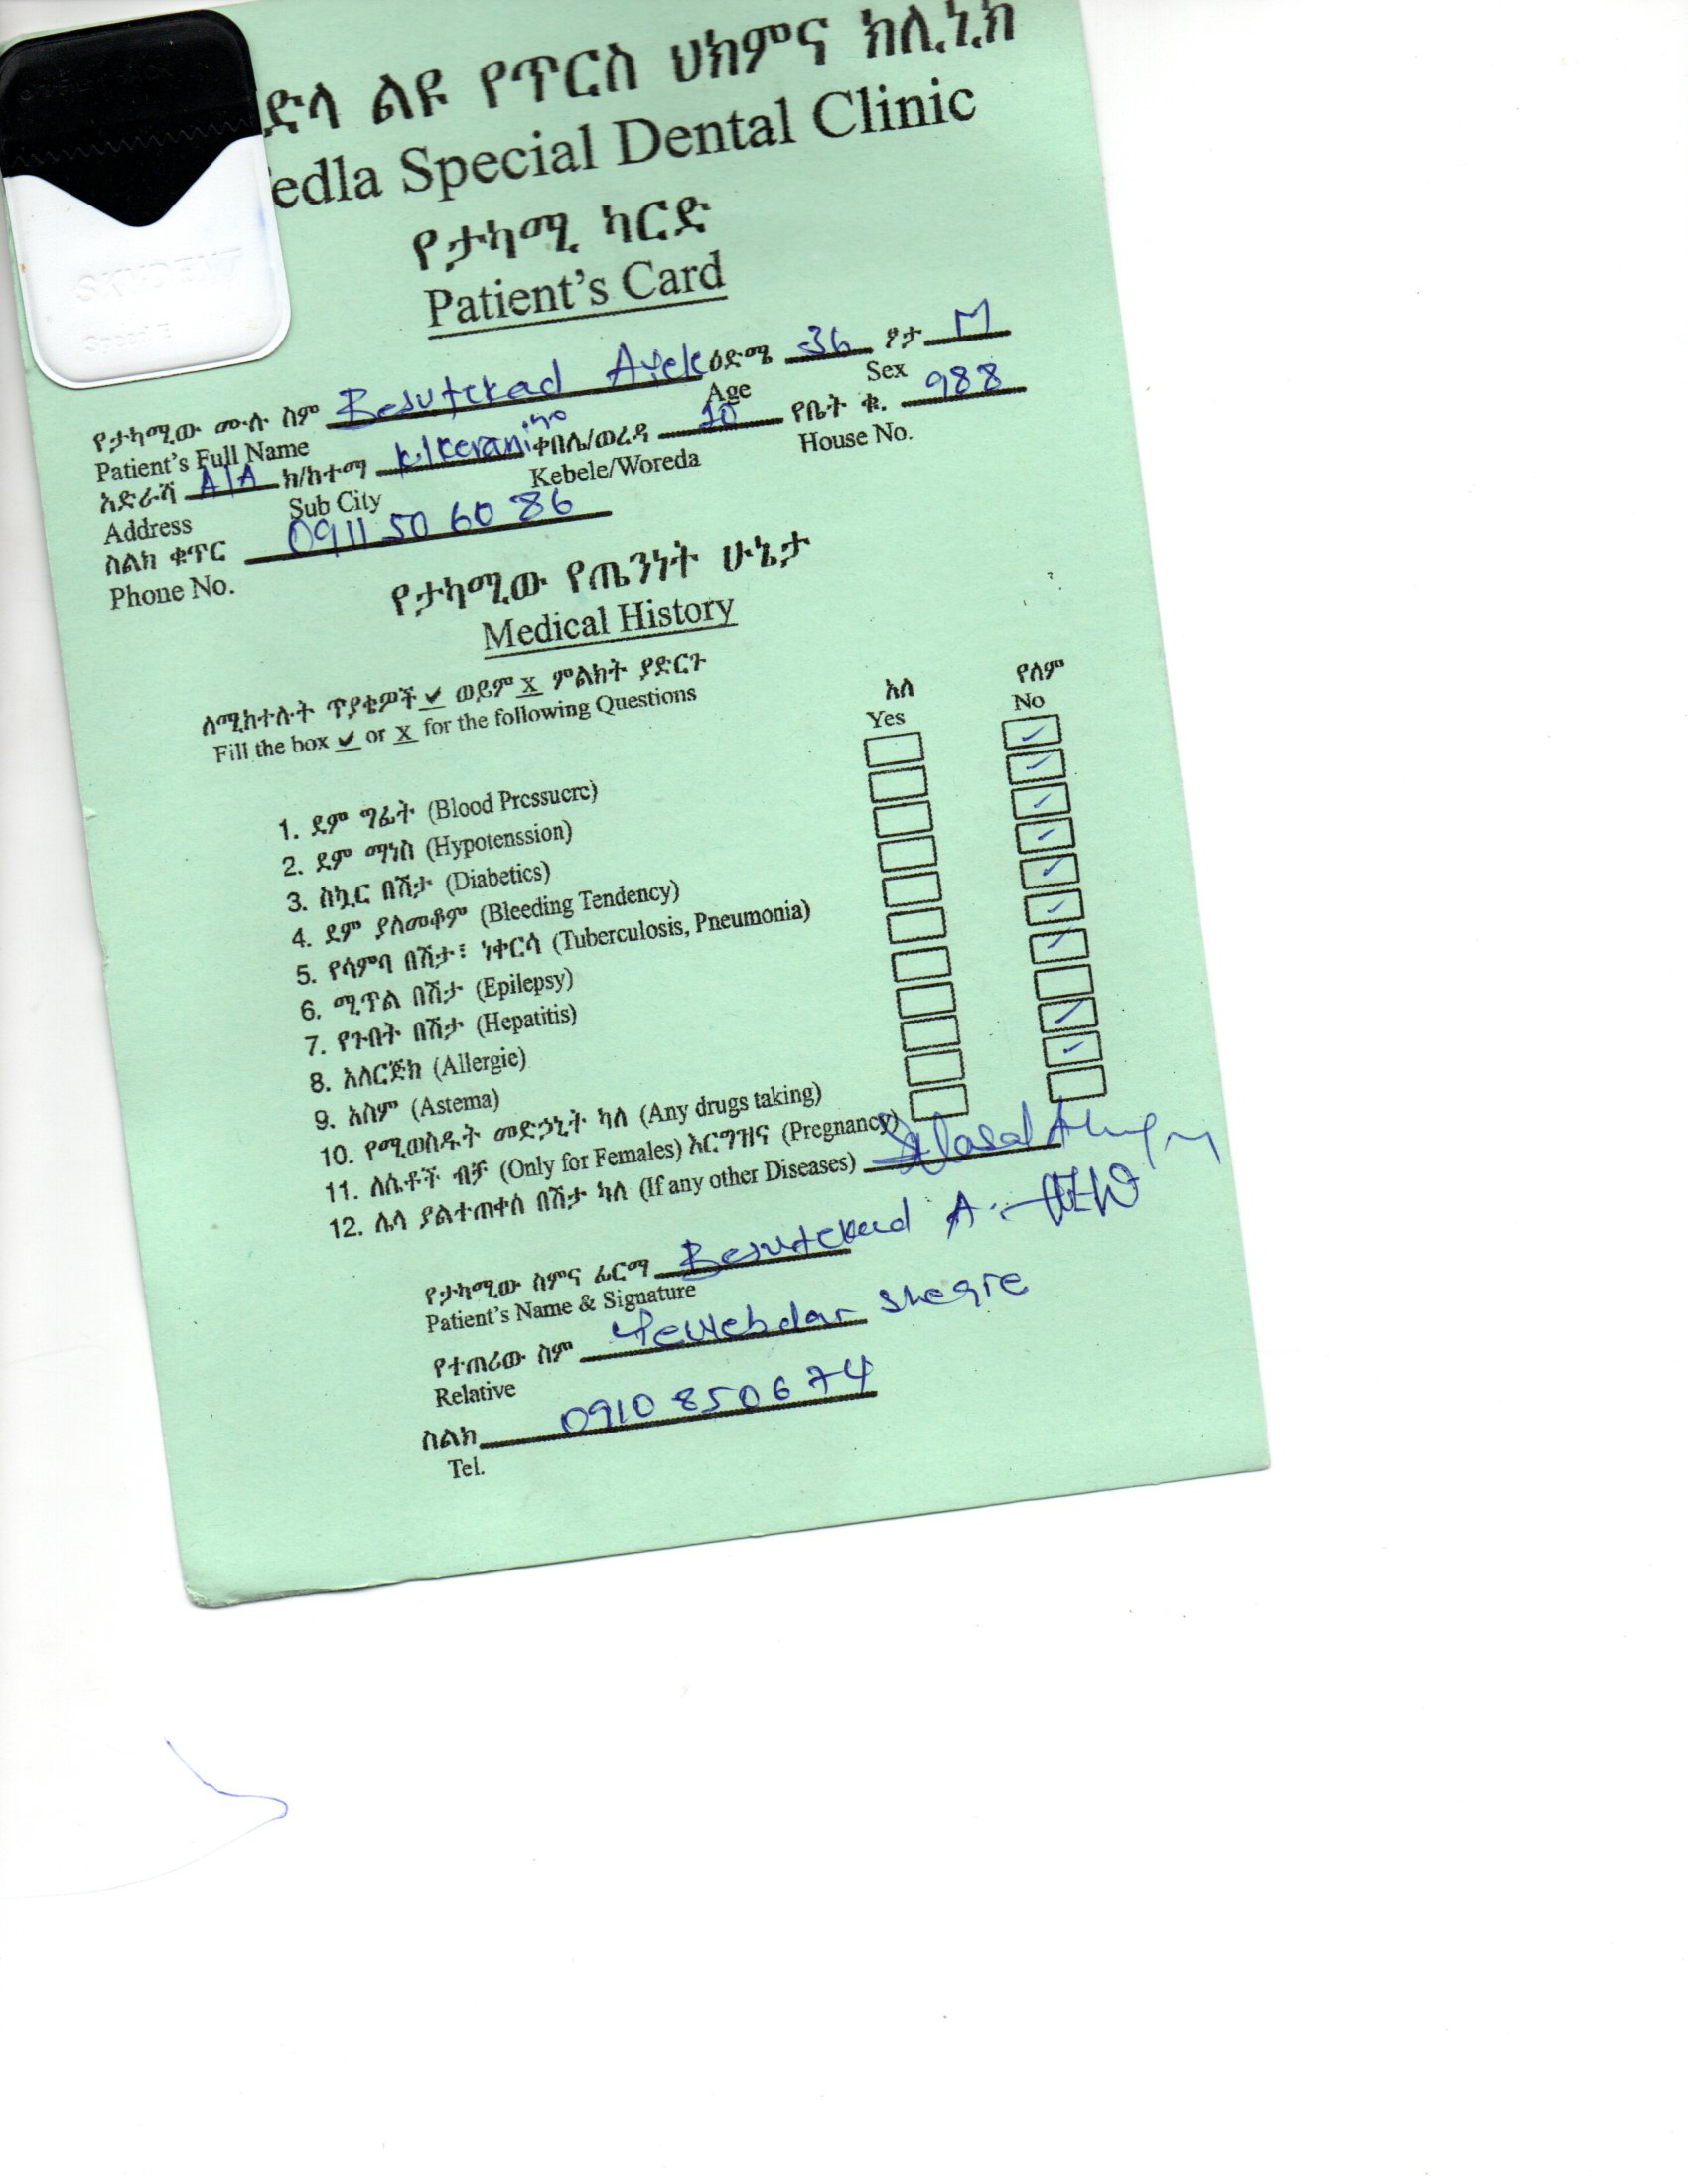 ድላ ልዩ የጥርስ ህክምና ክሊኒክ
edla Special Dental Clinic
የታካሚ ካርድ
Patient's Card
SKYDENT
Speed E
የታካሚው ሙሉ ስም Besutekad Ayele ዕድሜ 36 ፆታ M
Patient's Full Name Age Sex
አድራሻ A/A ክ/ከተማ k/keranino ቀበሌ/ወረዳ 10 የቤት ቁ. 988
Address Sub City Kebele/Woreda House No.
ስልክ ቁጥር 0911 50 60 86
Phone No.
የታካሚው የጤንነት ሁኔታ
Medical History
ለሚከተሉት ጥያቄዎች ✔ ወይም X ምልክት ያድርጉ
Fill the box ✔ or X for the following Questions
አለ የለም
Yes No
1. ደም ግፊት (Blood Pressuere) ✓
2. ደም ማነስ (Hypotenssion) ✓
3. ስኳር በሽታ (Diabetics) ✓
4. ደም ያለመቆም (Bleeding Tendency) ✓
5. የሳምባ በሽታ፣ ነቀርሳ (Tuberculosis, Pneumonia) ✓
6. ሚጥል በሽታ (Epilepsy) ✓
7. የጉበት በሽታ (Hepatitis) ✓
8. አለርጅክ (Allergie)
9. አስም (Astema) ✓
10. የሚወስዱት መድኃኒት ካለ (Any drugs taking) ✓
11. ለሴቶች ብቻ (Only for Females) እርግዝና (Pregnancy)
12. ሌላ ያልተጠቀሰ በሽታ ካለ (If any other Diseases)
የታካሚው ስምና ፊርማ Besutekad A.
Patient's Name & Signature
የተጠሪው ስም Yewebdar Shegre
Relative
ስልክ 0910 850674
Tel.